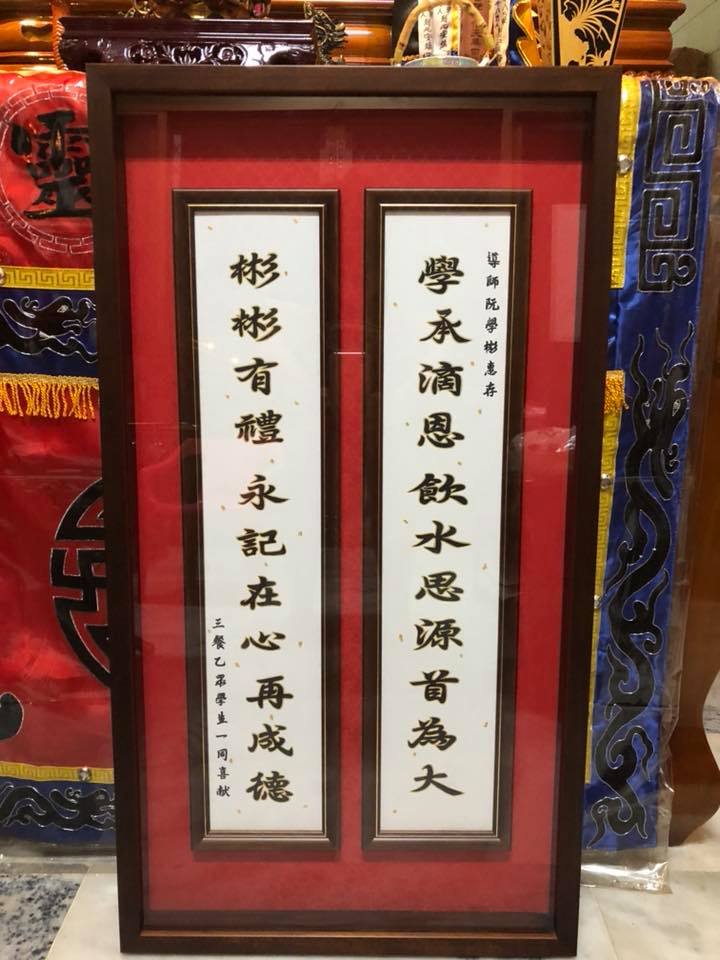 導師阮學彬惠存
學承滴恩飲水思源首為大
彬彬有禮永記在心再成德
三餐乙眾學生一同喜献
靈